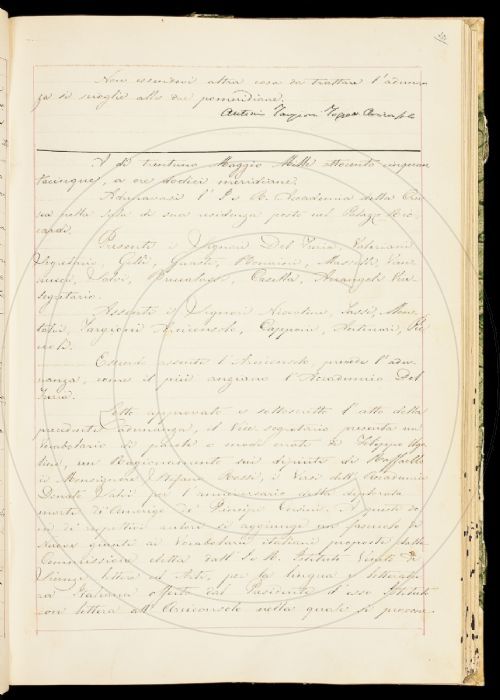 Non essendovi altra cosa da trattare l'adunan-
za si scioglie alle due pomeridiane.
Antonio Targioni Tozzetti
A dì trentuno Maggio Mille ottocento cinquan-
tacinque, a ore dodici meridiane.
Adunavasi l'I. e R. Accademia della Cru-
sca nella sala di sua residenza posta nel Palazzo Ric-
cardi.
Presenti i Signori Del Furia, Valeriani
Segretario, Gelli, Guasti, Bonaini, Masselli, Van-
nucci, Salvi, Casella, Arcangeli Vice
segretario.
Assenti i Signori Nicolini, Tassi, Mon-
talvi, Targioni Arciconsolo, Capponi,
Essendo assente l'Arciconsolo presiede l'adu-
nanza, come il più anziano l'Accademico Del
Furia.
Letto approvato e sottoscritto l'atto della
precedente adunanza, il Vice segretario presenta un
Vocabolario di parole e modi errati di Filippo Ugo-
lini, un Ragionamento sui dipinti di Raffaello
di Monsignore Stefano Rossi, i Versi dell'Accademico
Donato Salvi per l'anniversario della deplorata
morte di de' Principi Corsini. A questi do-
ni di rispettivi autori si aggiunge un fascicolo di
nuove giunte ai Vocabolari italiani proposte dalla
Commissione eletta dall'I. R. Istituto Veneto di
Scienze lettere ed Arti, per la lingua e letteratu-
ra Italiana offerto dal Presidente d'esso Istituto
con lettera all'Arciconsolo nella quale si